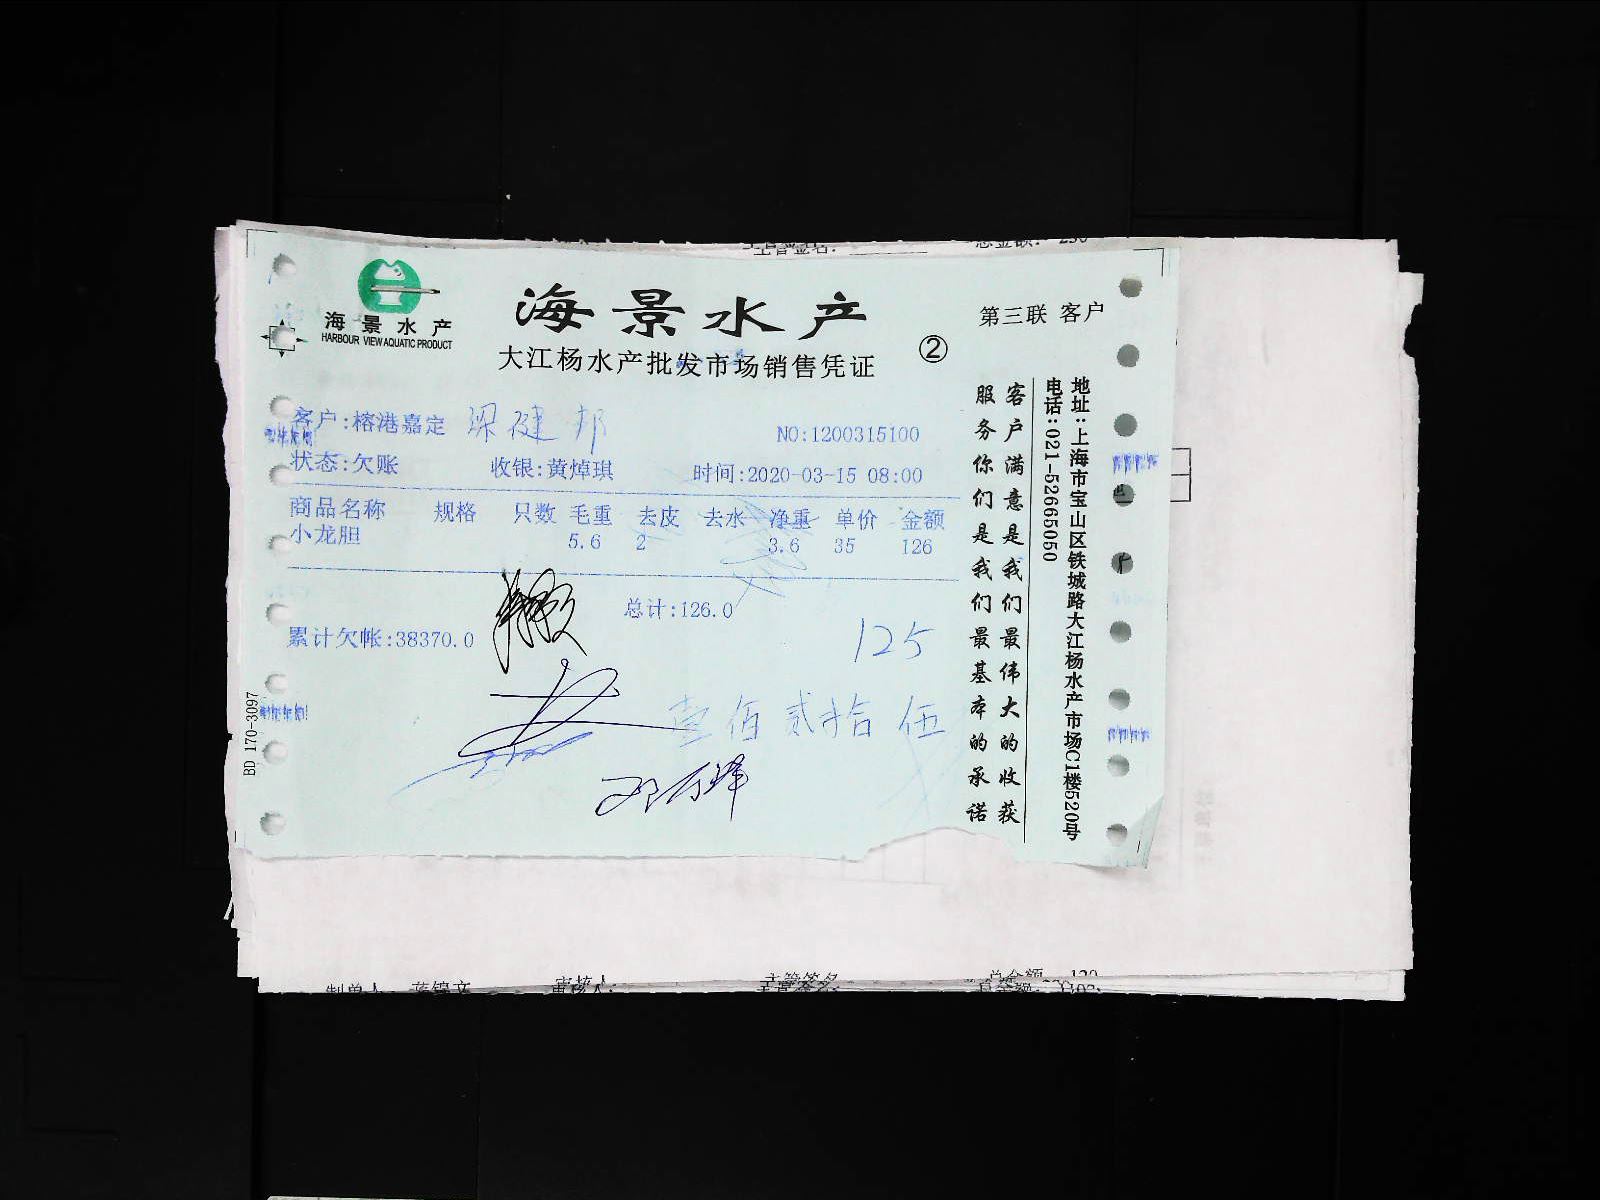 海景水产
HARBOUR VIEW AQUATIC PRODUCT
海景水产
大江杨水产批发市场销售凭证
②
第三联 客户
客户:榕港嘉定 梁健邦
NO:1200315100
状态:欠账 收银:黄焯琪 时间:2020-03-15 08:00
商品名称 规格 只数 毛重 去皮 去水 净重 单价 金额
小龙胆 5.6 2 3.6 35 126
总计:126.0
累计欠帐:38370.0
125
壹佰贰拾伍
客户满意是我们最伟大的收获
服务你们是我们最基本的承诺
地址:上海市宝山区铁城路大江杨水产市场C1楼520号
电话:021-52665050
BD 170-3097
制单人
审核人:
主管签名
总金额